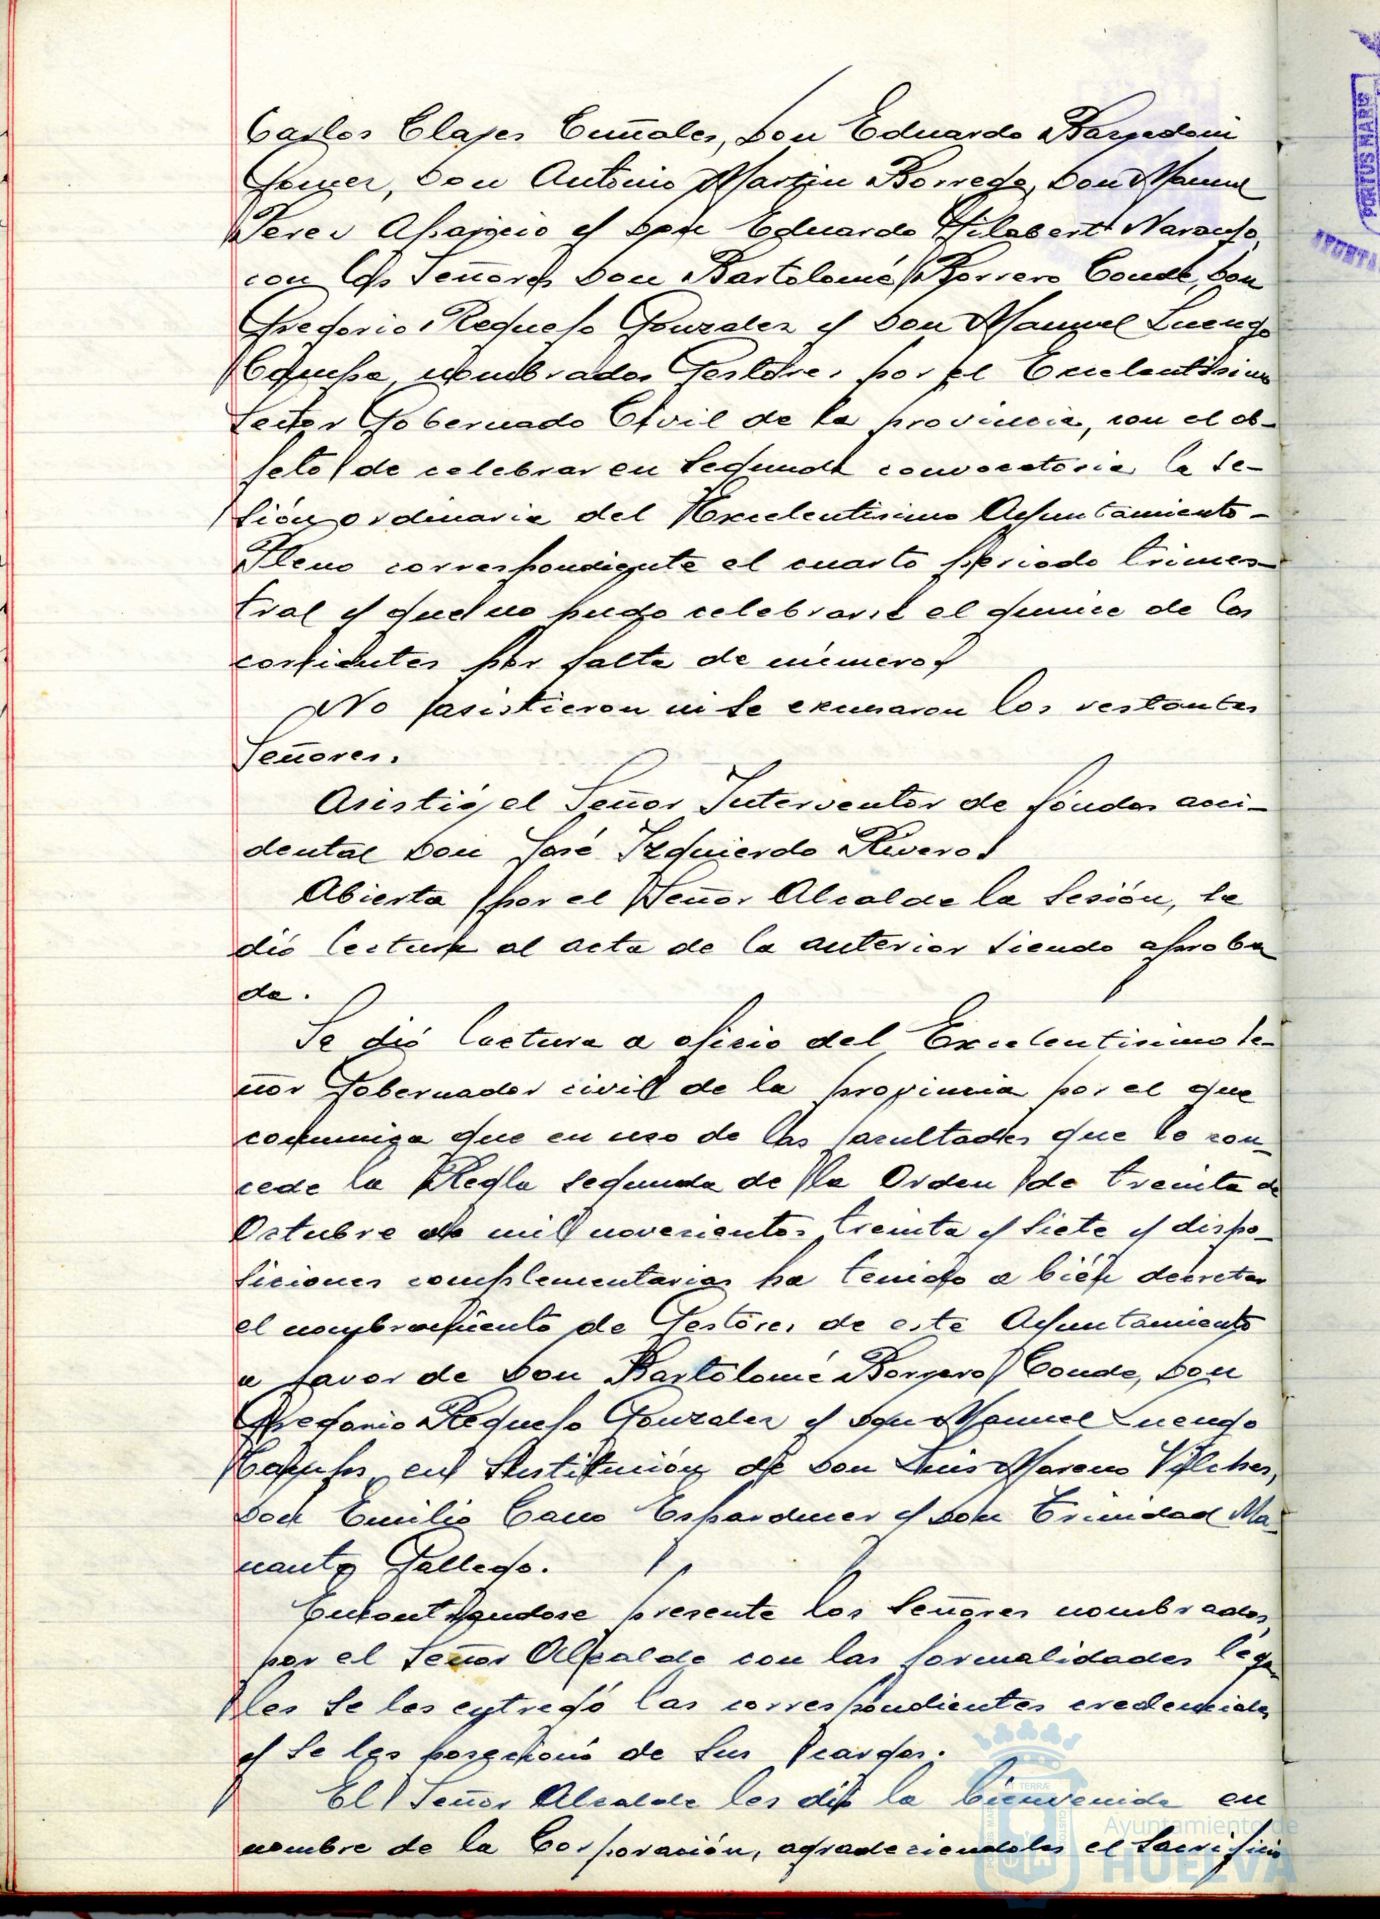 Carlos Clares Cuñales, Don Eduardo
Gomez, Don Antonio Martin Borrego, Don Manuel
Perez Aparicio y Don Eduardo Gilabert Naranjo,
con los Señores Don Bartolomé Borrero Conde, Don
Gregorio Requejo Gonzalez y Don Manuel Luengo
nombrados Gestores por el Excelentisimo
Señor Gobernado Civil de la provincia, con el ob-
jeto de celebrar en segunda convocatoria la se-
sión ordinaria del Excelentisimo Ayuntamiento-
Pleno correspondiente el cuarto periodo trimes-
tral y que no pudo celebrarse el quince de los
corrientes por falta de número.
No asistieron ni se excusaron los restantes
Señores.
Asistió el Señor Interventor de fondos acci-
dental Don José Izquierdo Rivero.
Abierta por el Señor Alcalde la sesión, se
dió lectura al acta de la anterior siendo aproba
da.
Se dió lectura a oficio del Excelentisimo Se-
ñor Gobernador civil de la provincia por el que
comuniga que en uso de las facultades que le con-
cede la Regla segunda de la Orden de treinta de
Octubre de mil novecientos treinta y siete y dispo-
siciones complementarias ha tenido a bién decretar
el nombramiento de Gestores de este Ayuntamiento
a favor de Don Bartolomé Borrero Conde, Don
Gregorio Requejo Gonzalez y Don Manuel Luengo
en sustitución de Don Luis Moreno Vilches,
Don Emilio Cano Esparducer y Don Trinidad Ma-
nanto Gallego.
Encontrandose presente los Señores nombrados,
por el Señor Alcalde con las formalidades lega-
les se les entregó las correspondientes credenciales
y se les posecionó de sus cargos.
El Señor Alcalde les dió la bienvenida en
nombre de la Corporación, agradeciendoles el sacrificio
PORTUS MARIS
Ayuntamiento de
HUELVA